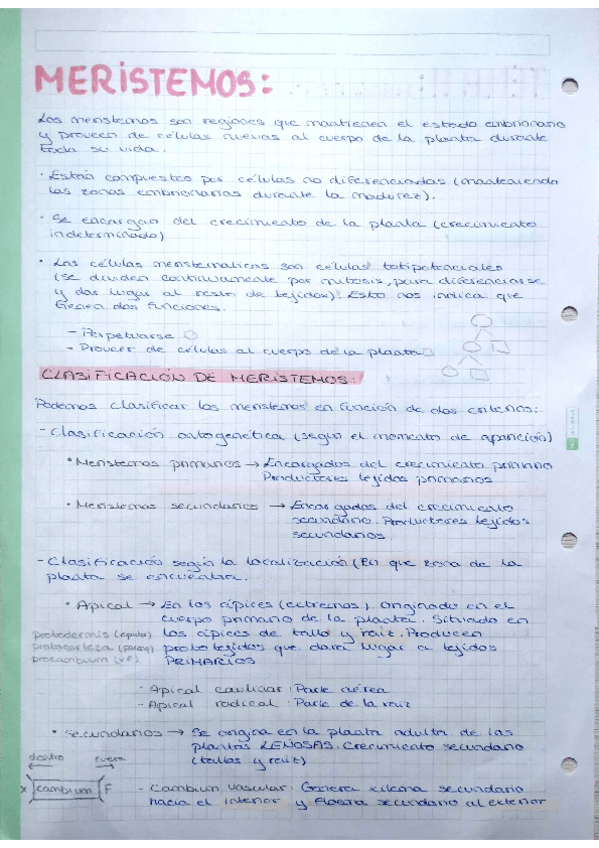 MERISTEMOS:
Los meristemos son regiones que mantienen el estado embrionario
y proveen de células nuevas al cuerpo de la planta durante
toda su vida.
· Están compuestos por células no diferenciadas (manteniendo
las zonas embrionarias durante la madurez).
· Se encargan del crecimiento de la planta (crecimiento
indeterminado)
· Las células meristemáticas son células totipotenciales
(se dividen continuamente por mitosis, para diferenciarse
y dar lugar al resto de tejidos). Esto nos indica que
tienen dos funciones.
- Perpetuarse
- Proveer de células al cuerpo de la planta
CLASIFICACIÓN DE MERISTEMOS:
Podemos clasificar los meristemos en función de dos criterios:
- Clasificación ontogenética (según el momento de aparición)
· Meristemos primarios → Encargados del crecimiento primario
Productores tejidos primarios
· Meristemos secundarios → Encargados del crecimiento
secundario. Productores tejidos
secundarios.
- Clasificación según la localización (En que zona de la
planta se encuentra.
· Apical → En los ápices (extremos). Originado en el
cuerpo primario de la planta. Situado en
protodermis (epider) los ápices de tallo y raiz. Producen
protocorteza (parenq) prototejidos que dará lugar a tejidos
procambium (v.F) PRIMARIOS
- Apical caulinar: Parte aérea
- Apical radical: Parte de la raiz
· Secundarios → Se origina en la planta adulta de las
plantas LEÑOSAS. Crecimiento secundario
(tallos y raiz)
dentro fuera
x cambium F - Cambium vascular: Genera xilema secundario
hacia el interior y floema secundario al exterior